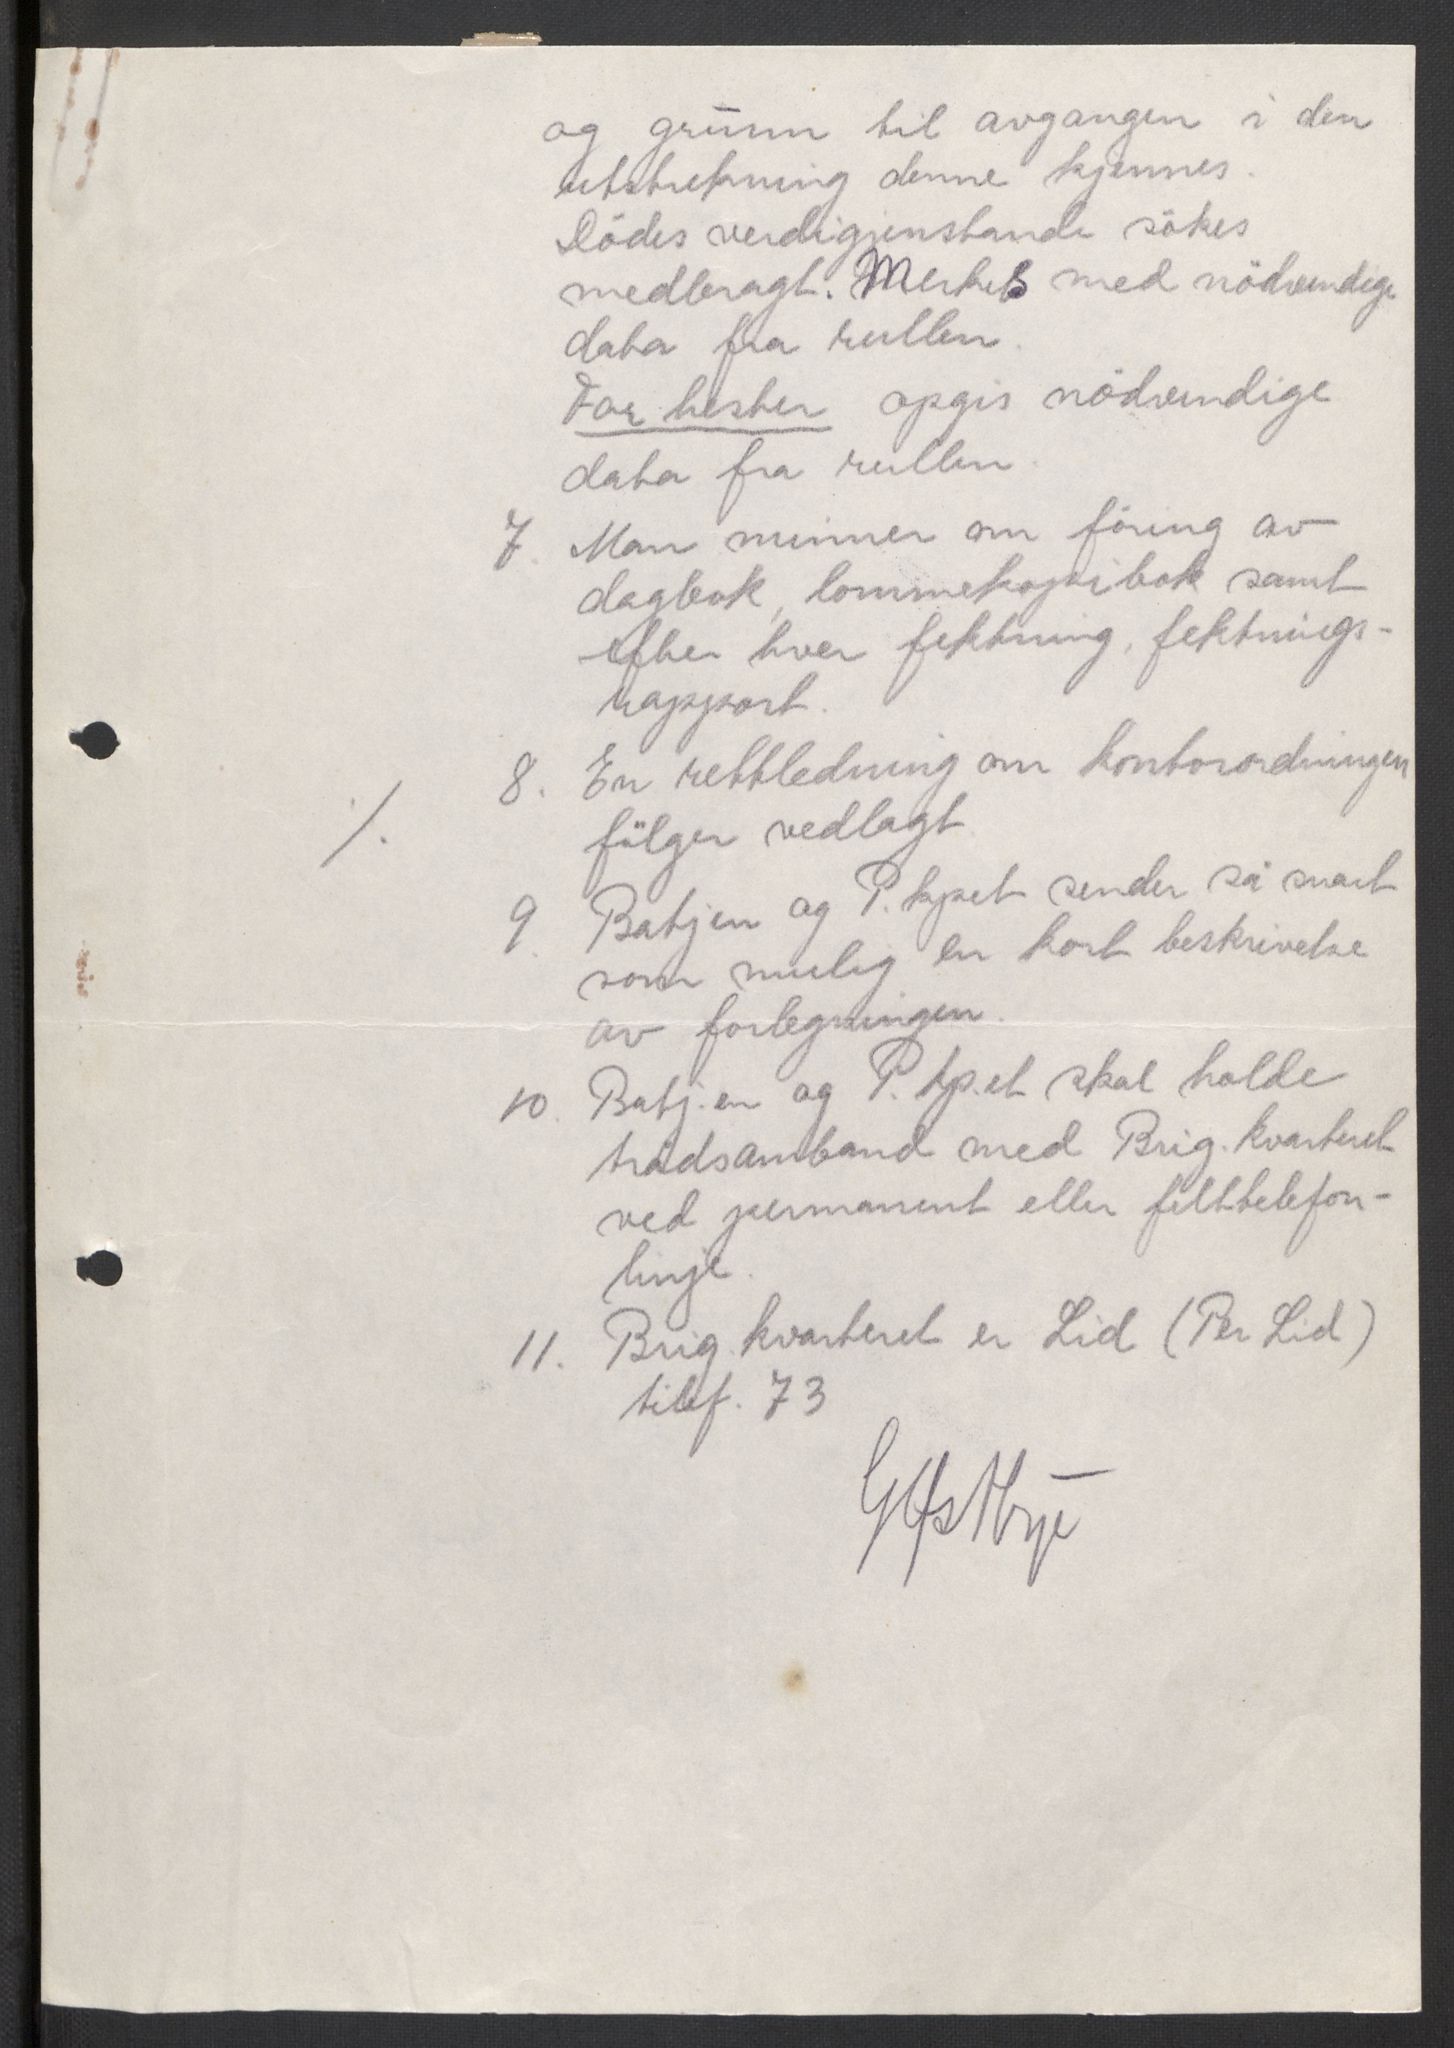 og grunn til avgangen i den
utstrekning denne kjennes.
Dödes verdigjenstande sökes
medbragt. Merkes med nödvendige
data fra rullen.
For hester opgis nödvendige
data fra rullen.
7. Man minner om föring av
dagbok, lommekopibok samt
efter hver fektning, fektnings-
rapport.
8. En rettledning om kontorordningen
./. fölger vedlagt
9. Batjen og P. kpet sender så snart
som mulig en kort beskrivelse
av forlegningen.
10. Batj.en og P. kp.et skal holde
trådsamband med Brig. kvarteret
ved permanent eller felttelefon-
linje.
11. Brig. kvarteret er Lid (Per Lid)
telef. 73
G Østbye